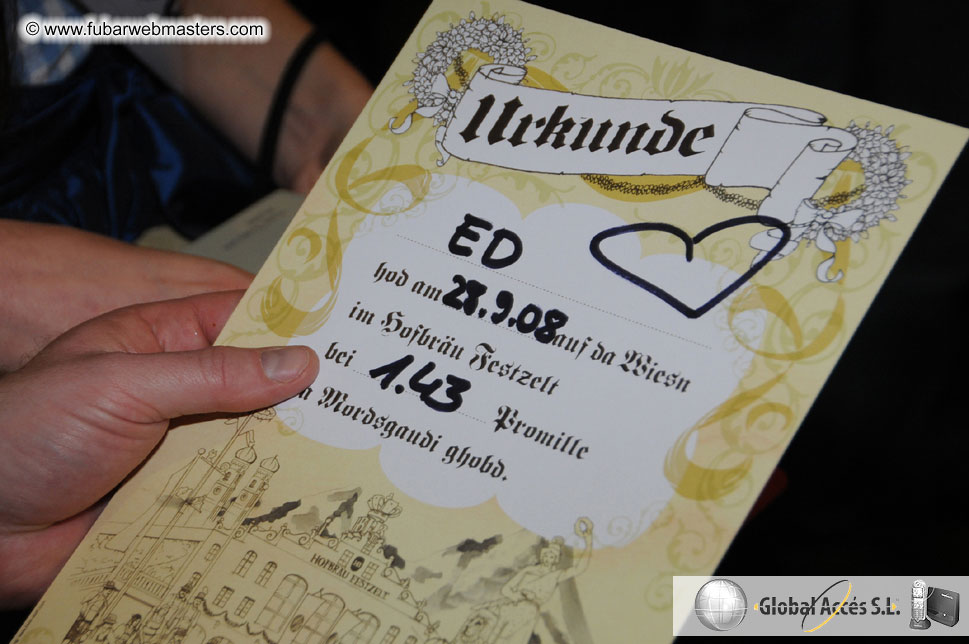 © www.fubarwebmasters.com
Urkunde
ED
hod am 28.9.08 auf da Wiesn
im Hofbräu Festzelt
bei 1.43 Promille
a Mordsgaudi ghobd.
HOFBRÄU FESTZELT
Global Accés S.L.